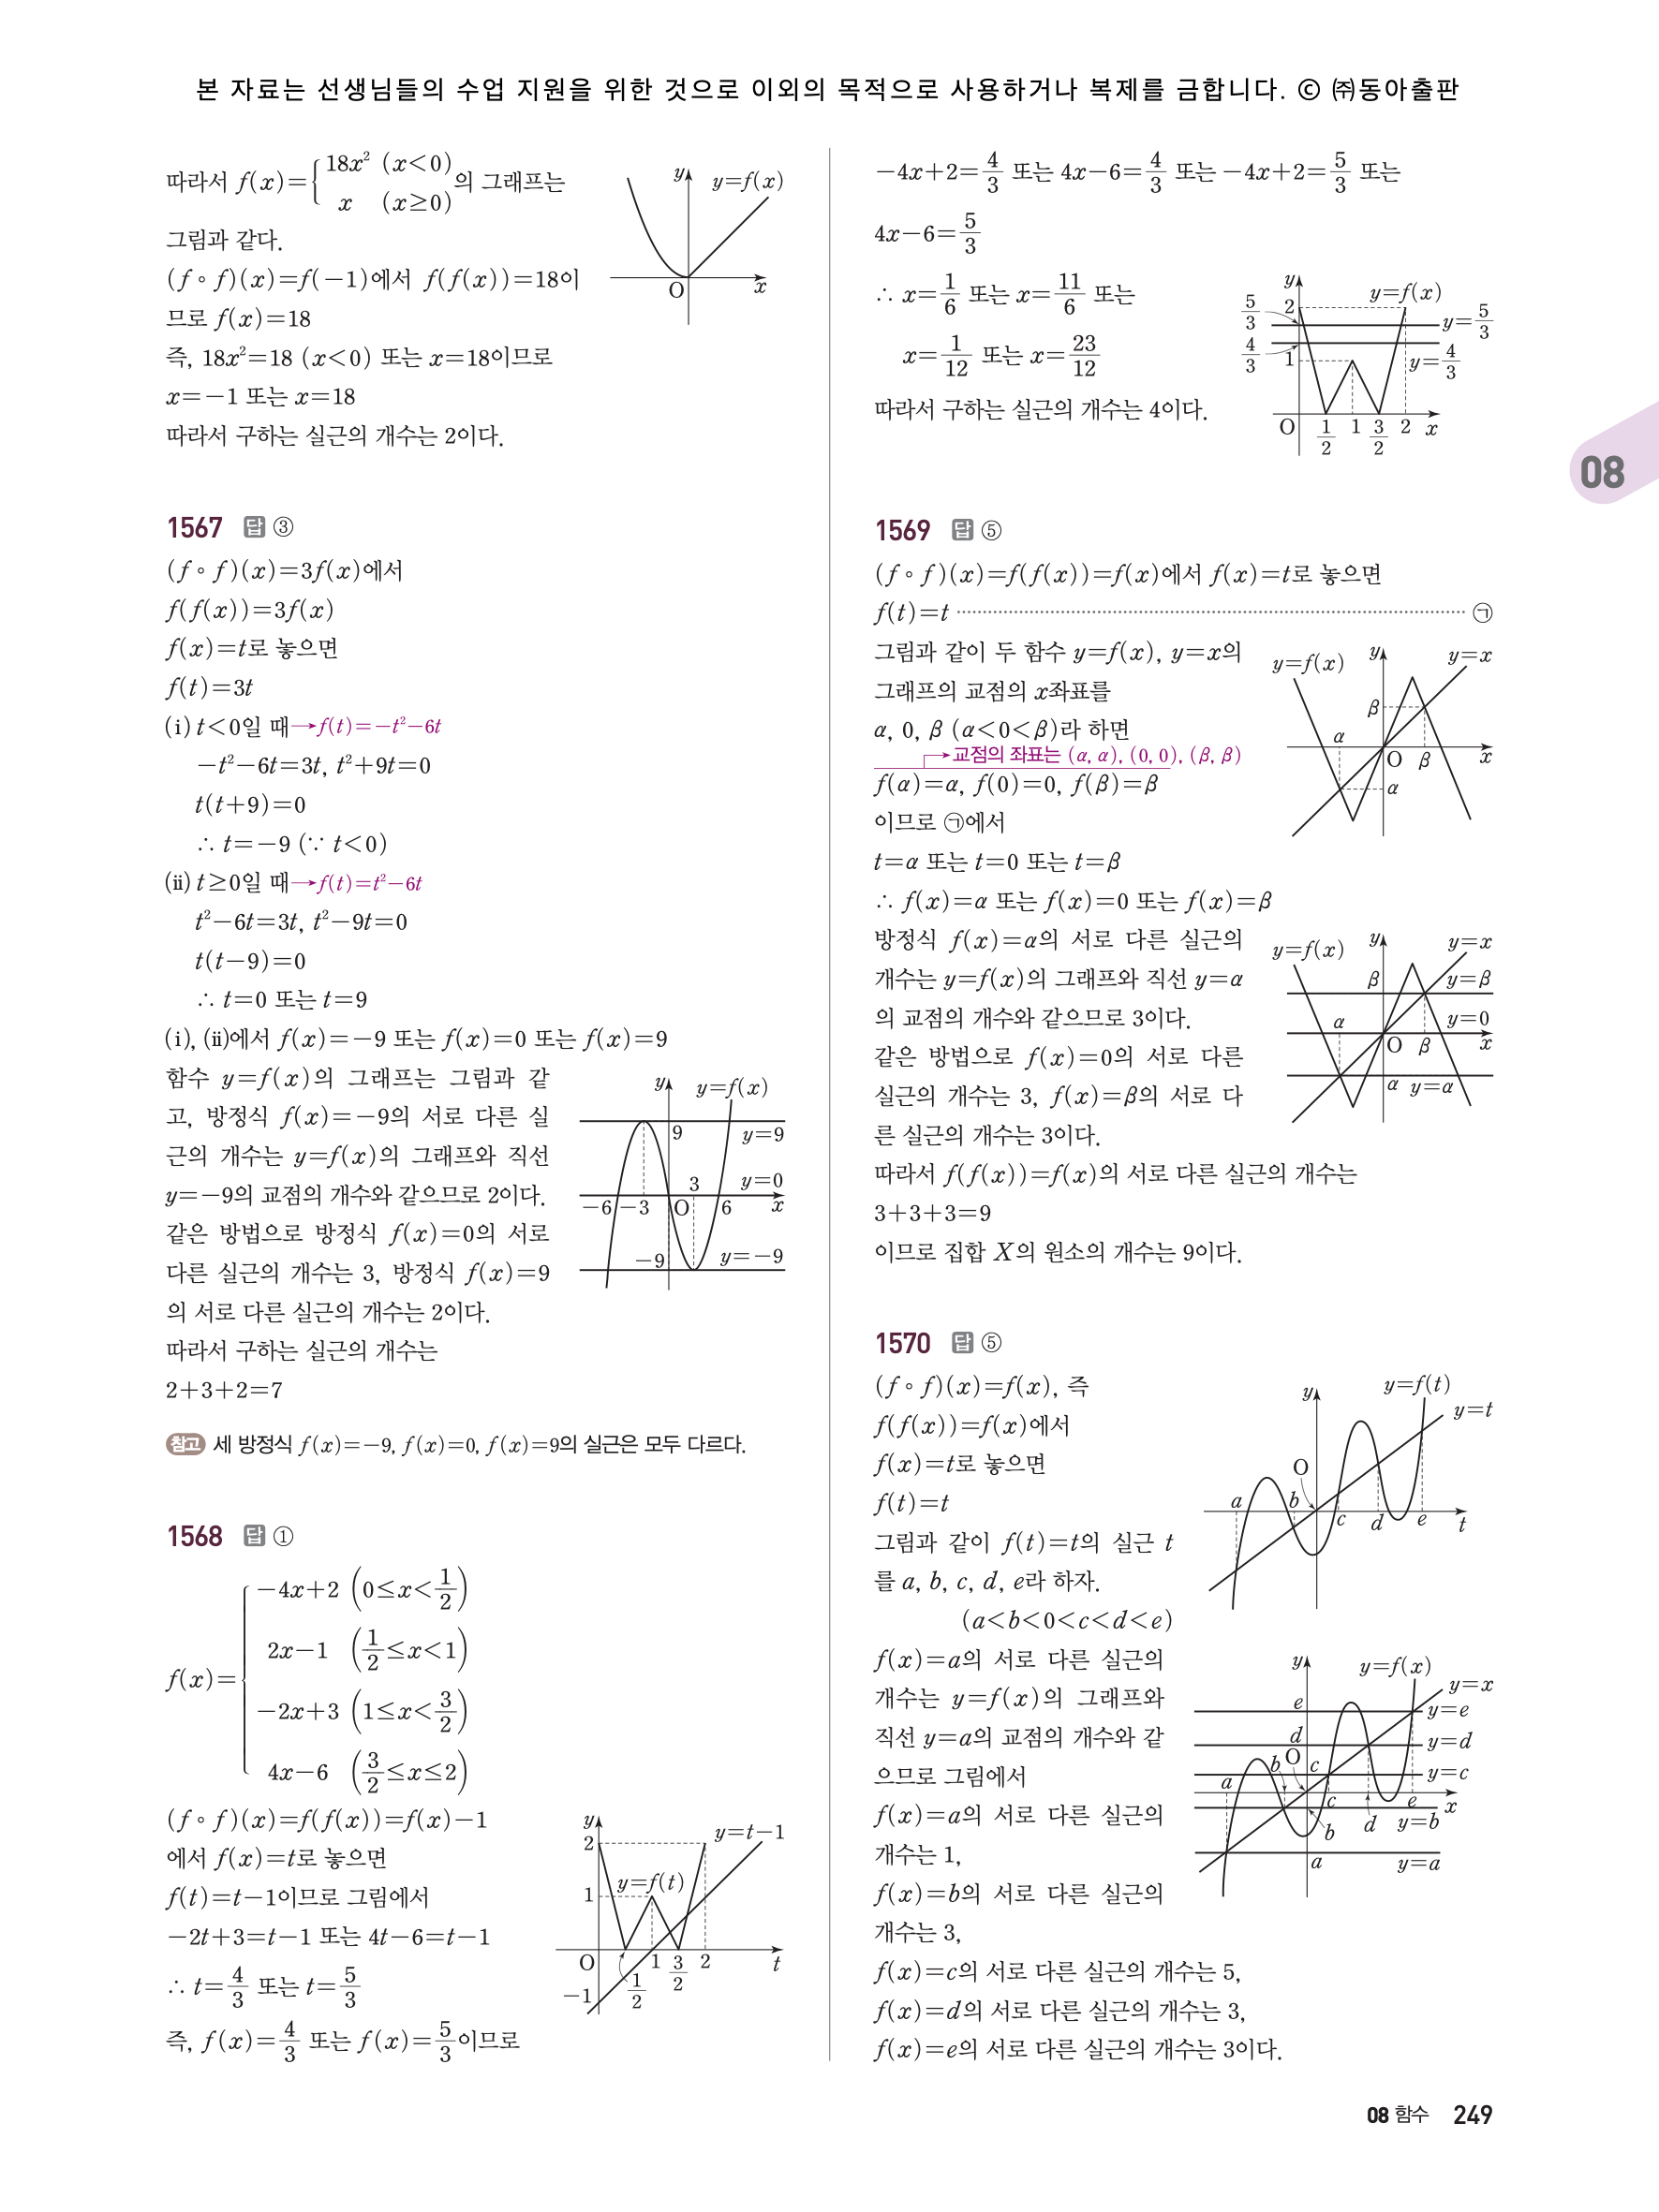 본 자료는 선생님들의 수업 지원을 위한 것으로 이외의 목적으로 사용하거나 복제를 금합니다. ⓒ ㈜동아출판
따라서 f(x)={ 18x² (x<0)
x (x≥0) 의 그래프는
그림과 같다.
(f∘f)(x)=f(-1)에서 f(f(x))=18이
므로 f(x)=18
즉, 18x²=18 (x<0) 또는 x=18이므로
x=-1 또는 x=18
따라서 구하는 실근의 개수는 2이다.
y y=f(x)
O x
1567 답 ③
(f∘f)(x)=3f(x)에서
f(f(x))=3f(x)
f(x)=t로 놓으면
f(t)=3t
(ⅰ) t<0일 때→f(t)=-t²-6t
-t²-6t=3t, t²+9t=0
t(t+9)=0
∴ t=-9 (∵ t<0)
(ⅱ) t≥0일 때→f(t)=t²-6t
t²-6t=3t, t²-9t=0
t(t-9)=0
∴ t=0 또는 t=9
(ⅰ), (ⅱ)에서 f(x)=-9 또는 f(x)=0 또는 f(x)=9
함수 y=f(x)의 그래프는 그림과 같
고, 방정식 f(x)=-9의 서로 다른 실
근의 개수는 y=f(x)의 그래프와 직선
y=-9의 교점의 개수와 같으므로 2이다.
같은 방법으로 방정식 f(x)=0의 서로
다른 실근의 개수는 3, 방정식 f(x)=9
의 서로 다른 실근의 개수는 2이다.
따라서 구하는 실근의 개수는
2+3+2=7
y y=f(x)
9 y=9
3 y=0
-6 -3 O 6 x
-9 y=-9
참고 세 방정식 f(x)=-9, f(x)=0, f(x)=9의 실근은 모두 다르다.
1568 답 ①
f(x)={ -4x+2 (0≤x<1/2)
2x-1 (1/2≤x<1)
-2x+3 (1≤x<3/2)
4x-6 (3/2≤x≤2)
(f∘f)(x)=f(f(x))=f(x)-1
에서 f(x)=t로 놓으면
f(t)=t-1이므로 그림에서
-2t+3=t-1 또는 4t-6=t-1
∴ t=4/3 또는 t=5/3
즉, f(x)=4/3 또는 f(x)=5/3이므로
y
2 y=t-1
y=f(t)
1
O 1 3/2 2 t
-1 1/2
-4x+2=4/3 또는 4x-6=4/3 또는 -4x+2=5/3 또는
4x-6=5/3
∴ x=1/6 또는 x=11/6 또는
x=1/12 또는 x=23/12
따라서 구하는 실근의 개수는 4이다.
y y=f(x)
5/3 2 y=5/3
4/3 1 y=4/3
O 1/2 1 3/2 2 x
08
1569 답 ⑤
(f∘f)(x)=f(f(x))=f(x)에서 f(x)=t로 놓으면
f(t)=t ⋯⋯ ㉠
그림과 같이 두 함수 y=f(x), y=x의
그래프의 교점의 x좌표를
α, 0, β (α<0<β)라 하면
→교점의 좌표는 (α, α), (0, 0), (β, β)
f(α)=α, f(0)=0, f(β)=β
이므로 ㉠에서
t=α 또는 t=0 또는 t=β
∴ f(x)=α 또는 f(x)=0 또는 f(x)=β
y=f(x) y y=x
β
α
O β x
α
방정식 f(x)=α의 서로 다른 실근의
개수는 y=f(x)의 그래프와 직선 y=α
의 교점의 개수와 같으므로 3이다.
같은 방법으로 f(x)=0의 서로 다른
실근의 개수는 3, f(x)=β의 서로 다
른 실근의 개수는 3이다.
따라서 f(f(x))=f(x)의 서로 다른 실근의 개수는
3+3+3=9
이므로 집합 X의 원소의 개수는 9이다.
y=f(x) y y=x
β y=β
α y=0
O β x
α y=α
1570 답 ⑤
(f∘f)(x)=f(x), 즉
f(f(x))=f(x)에서
f(x)=t로 놓으면
f(t)=t
그림과 같이 f(t)=t의 실근 t
를 a, b, c, d, e라 하자.
(a<b<0<c<d<e)
y y=f(t)
y=t
O
a b c d e t
f(x)=a의 서로 다른 실근의
개수는 y=f(x)의 그래프와
직선 y=a의 교점의 개수와 같
으므로 그림에서
f(x)=a의 서로 다른 실근의
개수는 1,
f(x)=b의 서로 다른 실근의
개수는 3,
f(x)=c의 서로 다른 실근의 개수는 5,
f(x)=d의 서로 다른 실근의 개수는 3,
f(x)=e의 서로 다른 실근의 개수는 3이다.
y y=f(x)
y=x
e y=e
d y=d
b O c y=c
a c e x
b d y=b
a y=a
08 함수 249